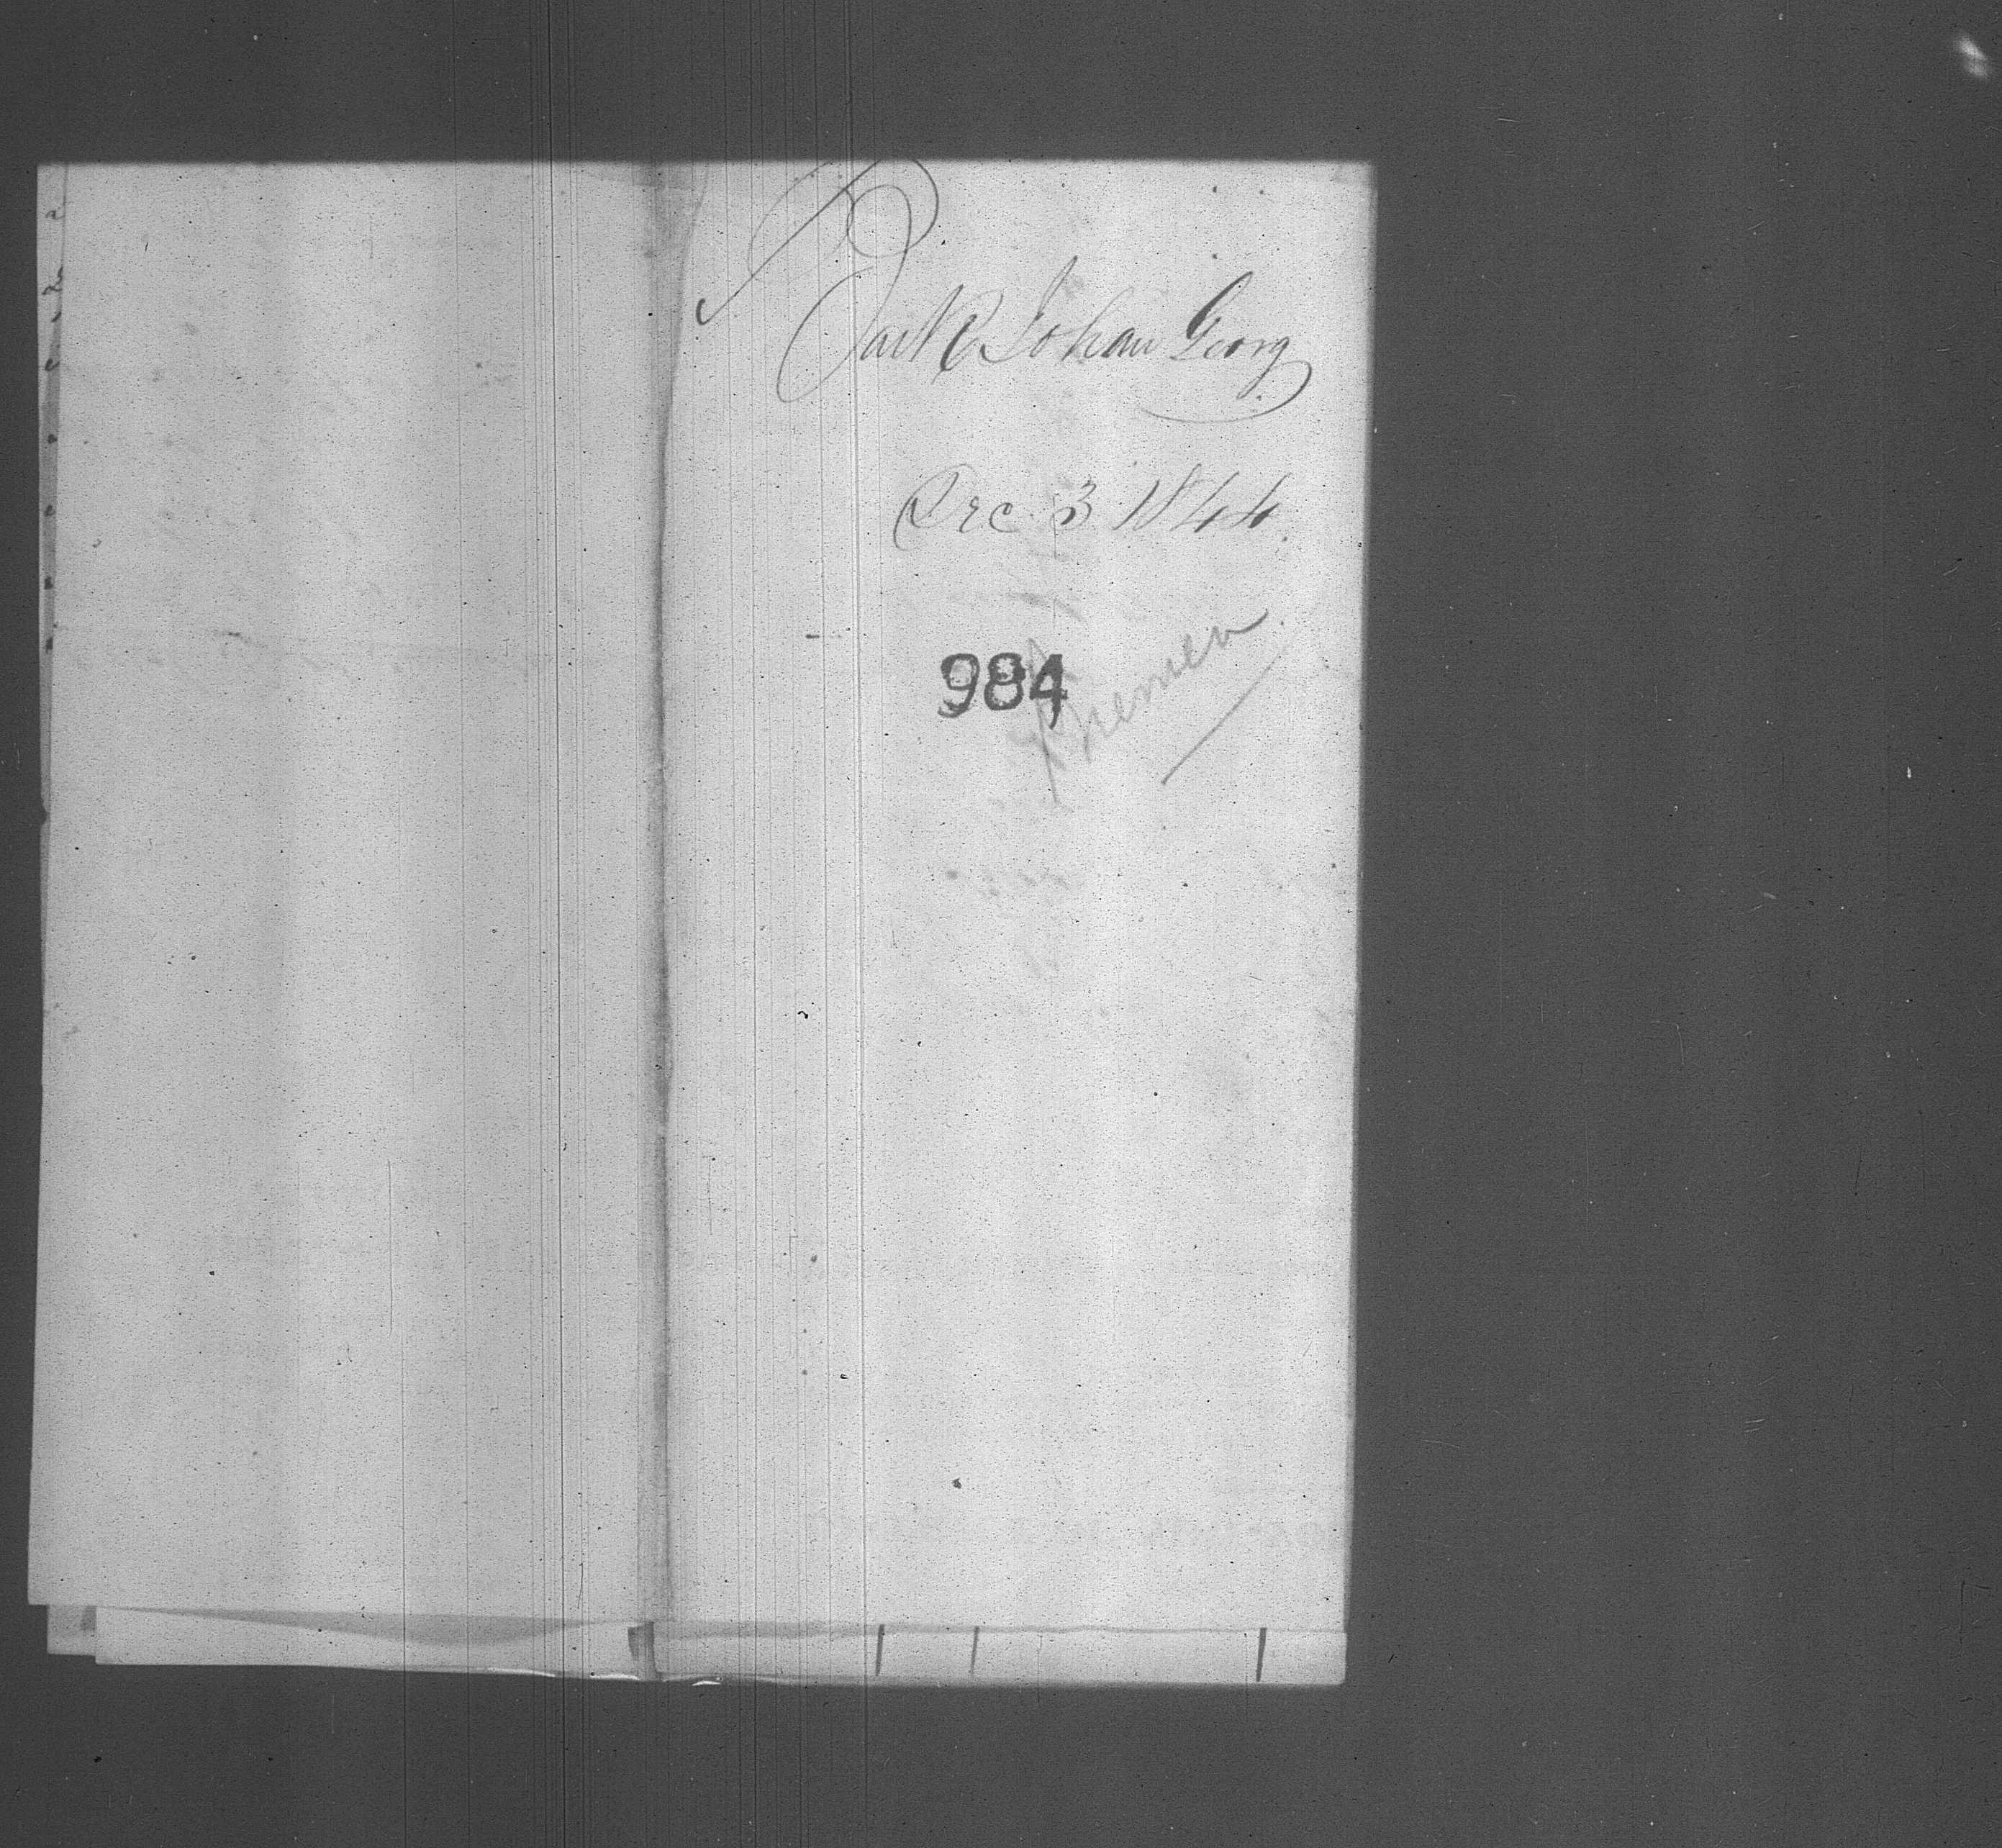 Bark Johan Georg
Dec 3 1844.
984
Bremen.